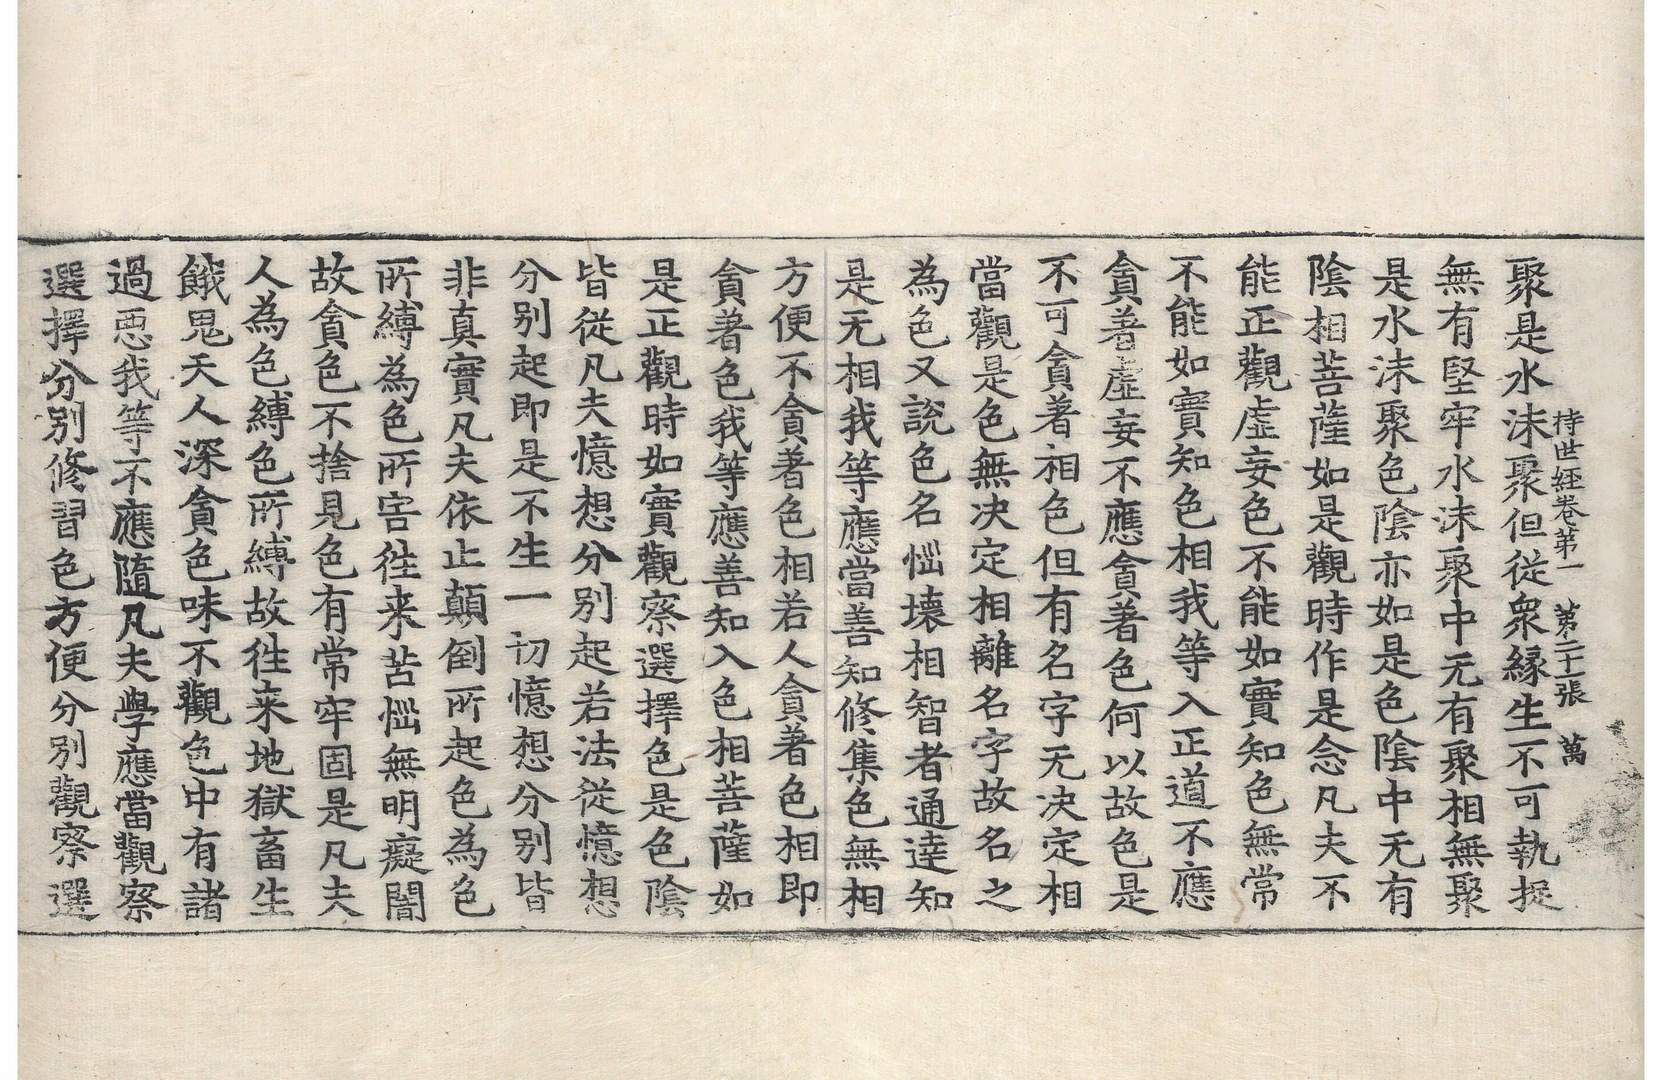 持世経卷第一 第二十一張 萬
聚是水沫聚但從衆縁生不可執捉
無有堅牢水沫聚中无有聚相無聚
是水沫聚色陰亦如是色陰中无有
陰相菩薩如是觀時作是念凡夫不
能正觀虛妄色不能如實知色無常
不能如實知色相我等入正道不應
貪著虛妄不應貪著色何以故色是
不可貪著相色但有名字无决定相
當觀是色無决定相離名字故名之
為色又說色名惱壞相智者通達知
是无相我等應當善知修集色無相
方便不貪著色相若人貪著色相即
貪著色我等應善知入色相菩薩如
是正觀時如實觀察選擇色是色陰
皆從凡夫憶想分別起若法從憶想
分別起即是不生一切憶想分別皆
非真實凡夫依止顛倒所起色為色
所縛為色所害往来苦惱無明癡闇
故貪色不捨見色有常牢固是凡夫
人為色縛色所縛故往来地獄畜生
餓鬼天人深貪色味不觀色中有諸
過惡我等不應隨凡夫學應當觀察
選擇分別修習色方便分別觀察選